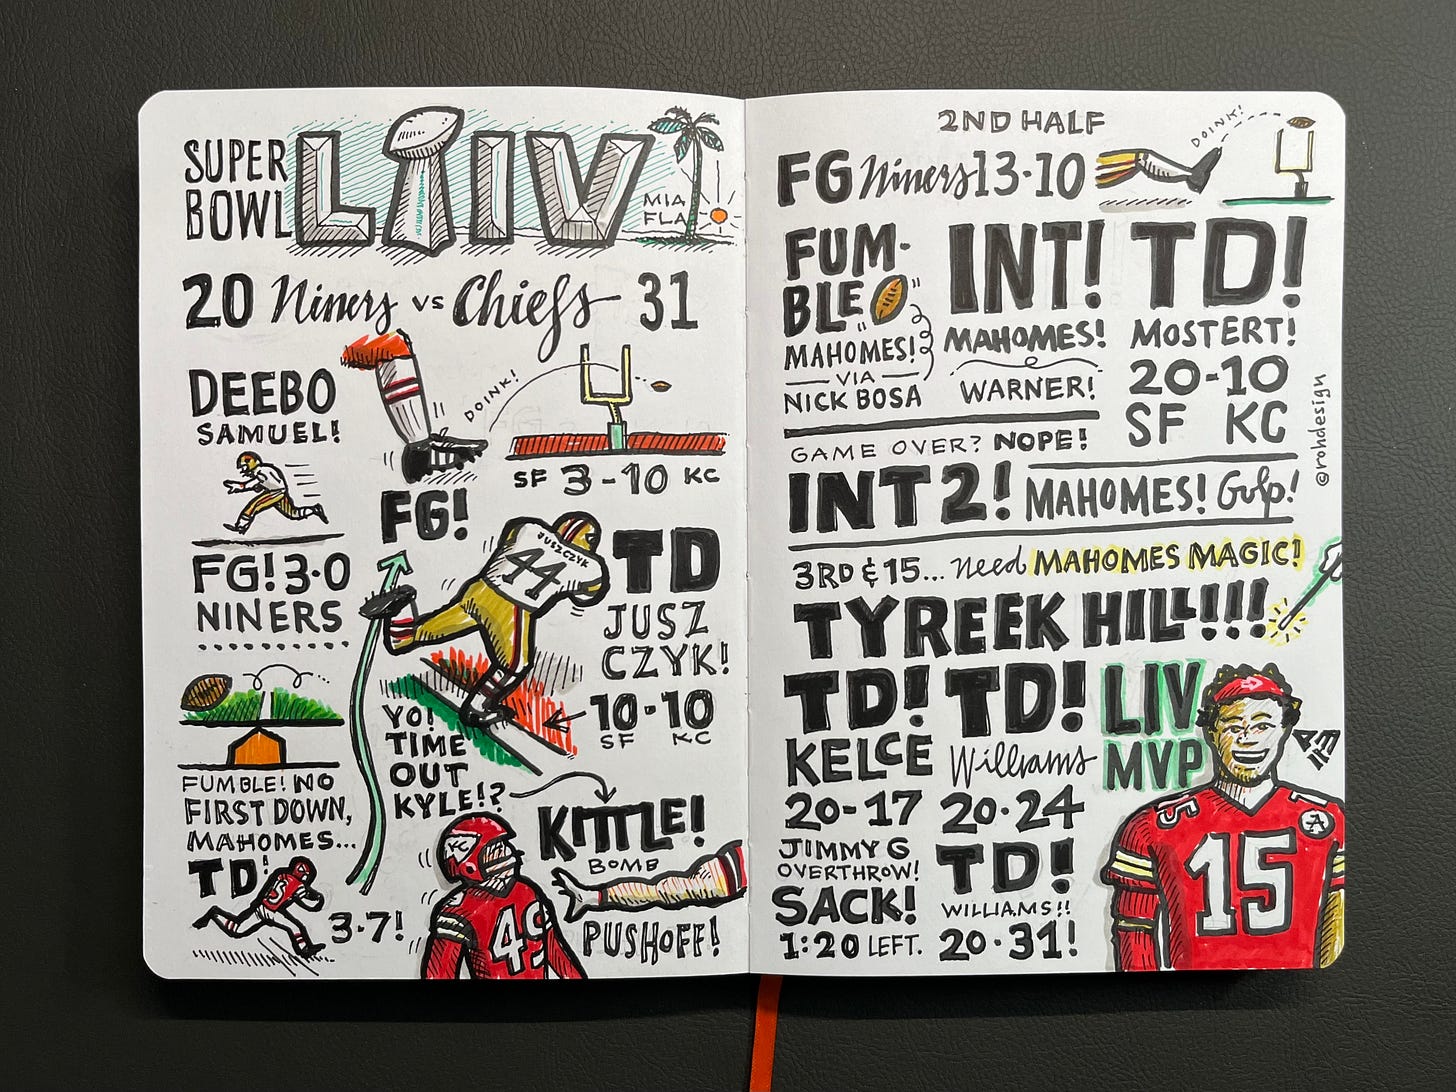 SUPER
BOWL
LIV
MIA
FLA
20 Niners vs Chiefs 31
DEEBO
SAMUEL!
FG! 3-0
NINERS
FUMBLE! NO
FIRST DOWN,
MAHOMES...
TD!
3-7!
DOINK!
FG!
SF 3-10 KC
JUSZCZYK
44
TD
JUSZ
CZYK!
10-10
SF KC
YO!
TIME
OUT
KYLE!?
KITTLE!
BOMB
PUSHOFF!
KC
49
2ND HALF
FG Niners 13-10
DOINK!
FUM-
BLE
MAHOMES!
VIA
NICK BOSA
INT!
MAHOMES!
WARNER!
TD!
MOSTERT!
20-10
SF KC
@rohdesign
GAME OVER? NOPE!
INT 2! MAHOMES! Gulp!
3RD & 15... need MAHOMES MAGIC!
TYREEK HILL!!!
TD!
KELCE
20-17
JIMMY G
OVERTHROW!
SACK!
1:20 LEFT.
TD!
Williams
20-24
TD!
WILLIAMS!!
20-31!
LIV
MVP
15